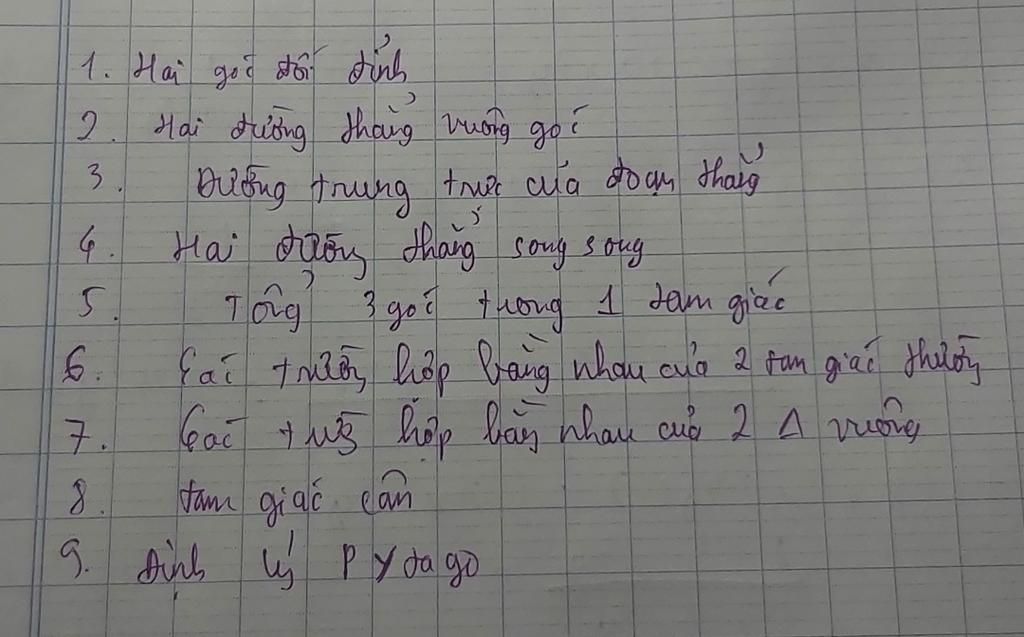 1. Hai góc đối đỉnh
2. Hai đường thẳng vuông góc
3. Đường trung trực của đoạn thẳng
4. Hai đường thẳng song song
5. Tổng 3 góc trong 1 tam giác
6. Các trường hợp bằng nhau của 2 tam giác thường
7. Các trường hợp bằng nhau của 2 Δ vuông
8. tam giác cân
9. Định lý Pytago